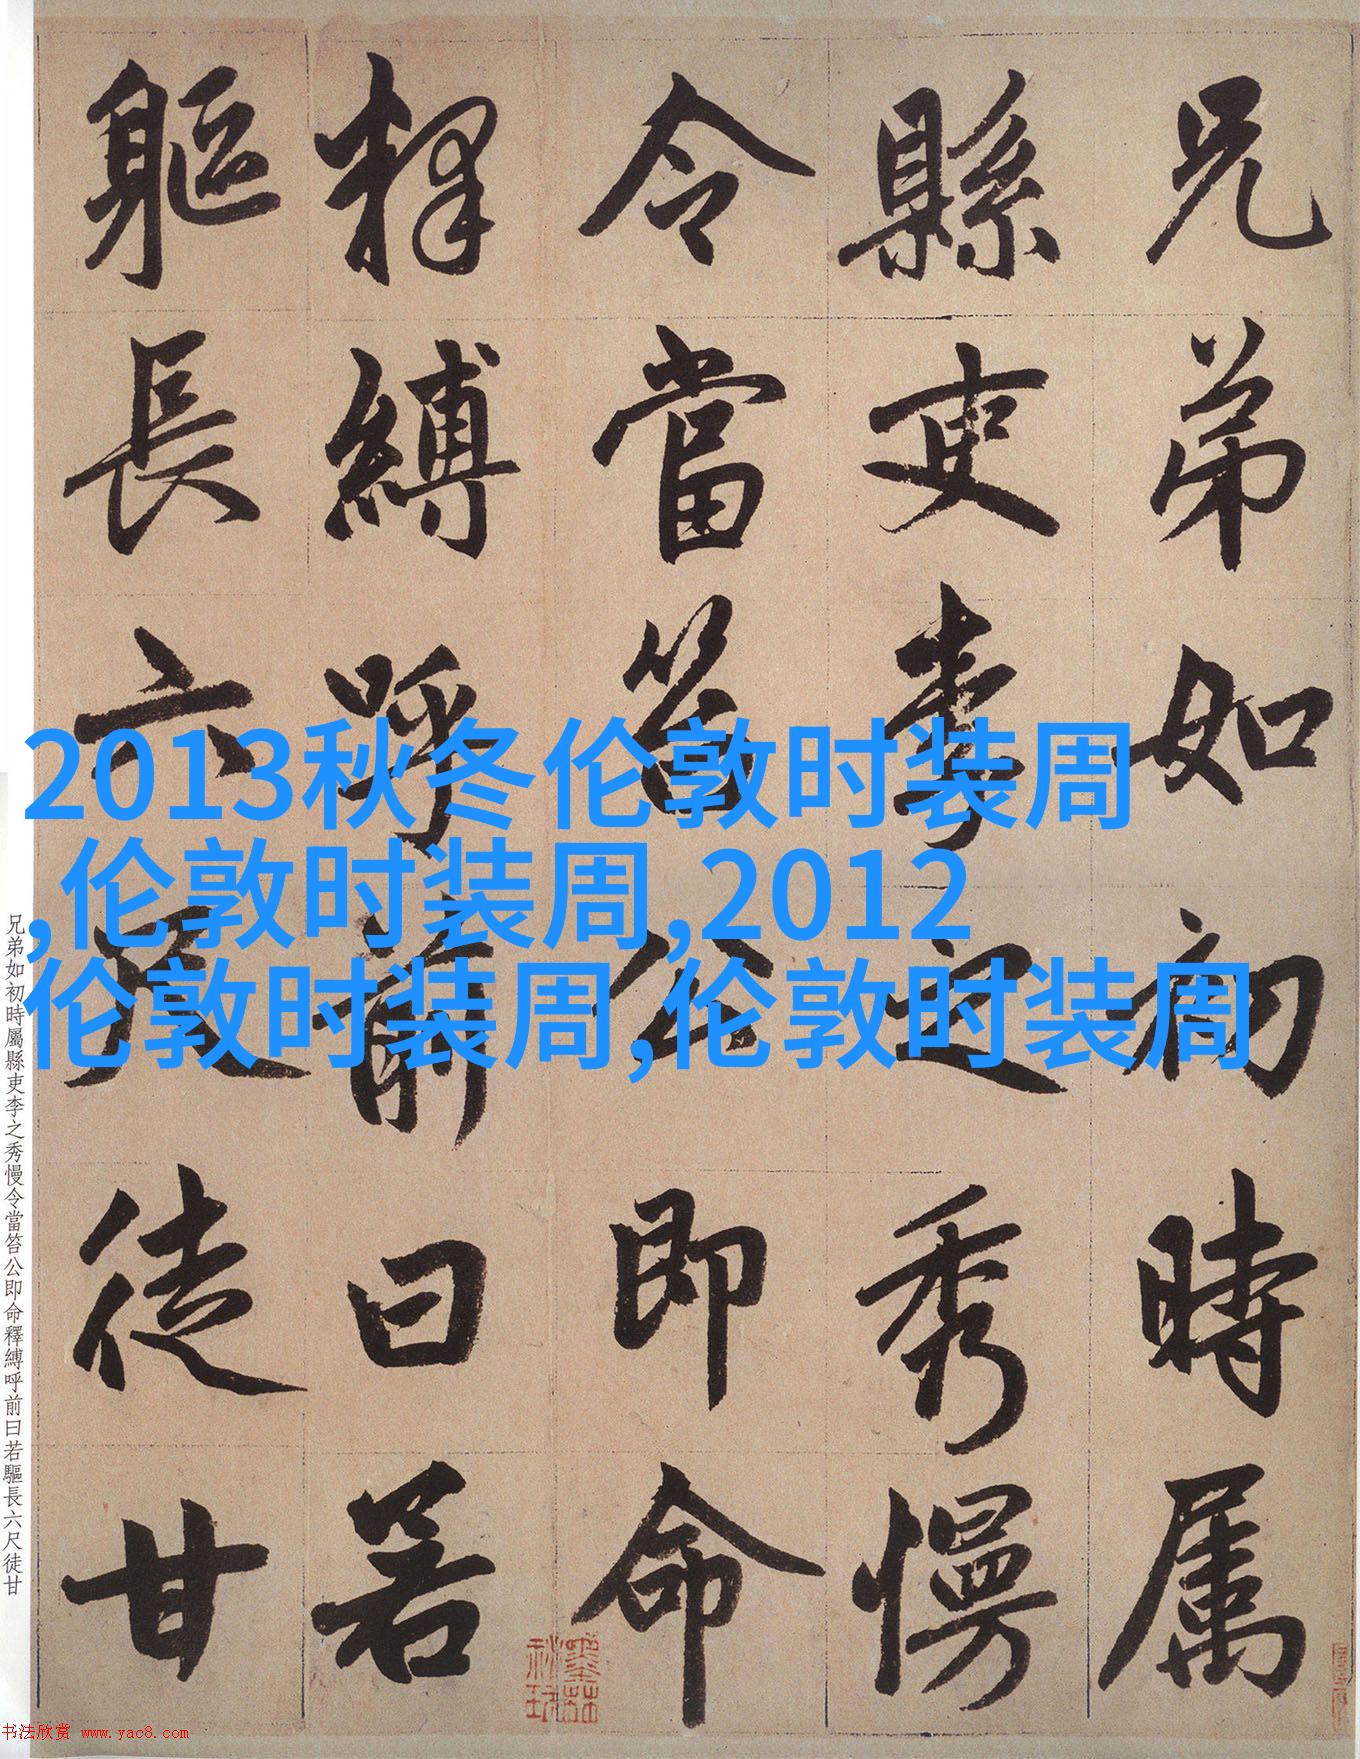 兄弟如初時属
縣吏李之秀慢
令當笞公即命
释縛呼前曰若
軀長六尺徒甘
2013秋冬伦敦时装周
,伦敦时装周,2012
伦敦时装周,伦敦时装周
兄弟如初時屬縣吏李之秀慢令當笞公即命釋縛呼前曰若軀長六尺徒甘
书法欣赏 www.yac8.com